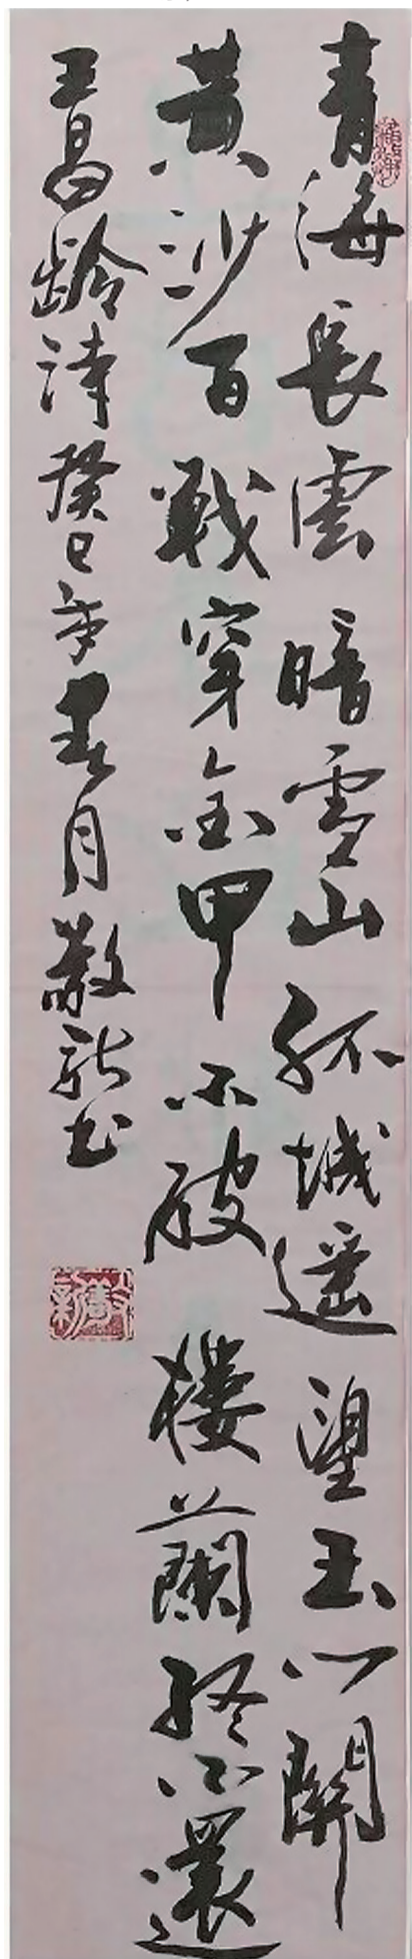 青海長雲暗雪山孤城遥望玉門關
黄沙百戰穿金甲不破樓蘭終不還
王昌龄诗癸巳年春月书